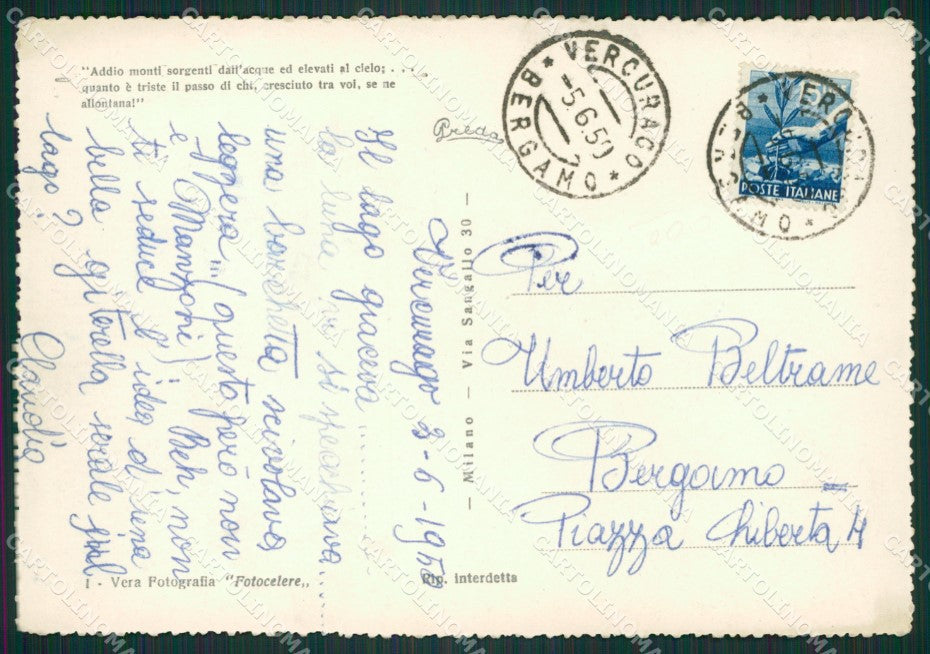 "Addio monti sorgenti dall'acque ed elevati al cielo; . . . .
quanto è triste il passo di chi, cresciuto tra voi, se ne
allontana!"
Vercurago 3-6-1950
Il lago giaceva ..........
la luna vi si specchiava....
una barchetta scivolava
leggera... (questo però non
è Manzoni) Beh, non
ti seduce l'idea d'una
bella gitarella serale sul
lago?
Claudia
VERCURAGO
* BERGAMO *
-5.6.50
POSTE ITALIANE
- Milano - Via Sangallo 30 -
Per
Umberto Beltrame
Bergamo
Piazza Chiberta 4
1 - Vera Fotografia "Fotocelere„
Rip. interdetta
CARTOLINOMANIA